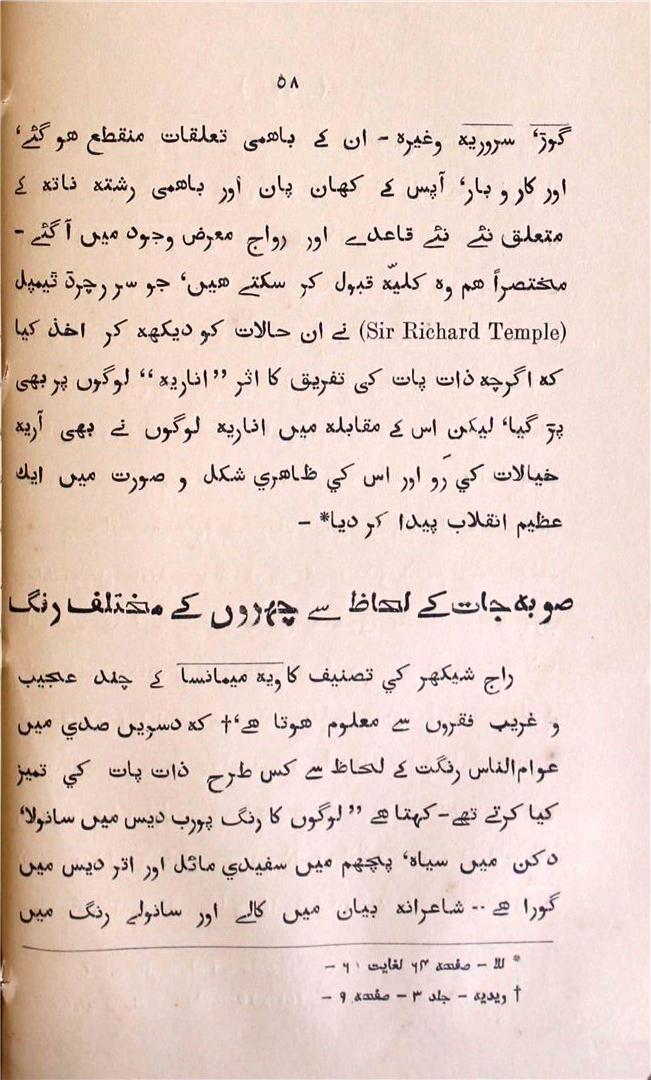 ۵۸
گوڑ، سروریہ وغیرہ - ان کے باھمی تعلقات منقطع ھو گئے،
اور کار و بار، آپس کے کھان پان اور باھمی رشتہ ناتہ کے
متعلق نئے نئے قاعدے اور رواج معرض وجود میں آگئے -
مختصراً ھم وہ کلیّہ قبول کر سکتے ھیں، جو سر رچرڈ ٹیمپل
(Sir Richard Temple) نے ان حالات کو دیکھہ کر اخذ کیا
کہ اگرچہ ذات پات کی تفریق کا اثر ”اناریہ“ لوگوں پر بھی
پڑ گیا، لیکن اس کے مقابلہ میں اناریہ لوگوں نے بھی آریہ
خیالات کي رَو اور اس کي ظاھري شکل و صورت میں ایك
عظیم انقلاب پیدا کر دیا* -
صوبہ جات کے لحاظ سے چہروں کے مختلف رنگ
راج شیکھر کي تصنیف کاویہ میمانسا کے چند عجیب
و غریب فقروں سے معلوم ھوتا ھے،† کہ دسویں صدي میں
عوام الناس رنگت کے لحاظ سے کس طرح ذات پات کي تمیز
کیا کرتے تھے - کہتا ھے ”لوگوں کا رنگ پورب دیس میں سانولا،
دکن میں سیاہ، پچھم میں سفیدي مائل اور اتر دیس میں
گورا ھے -- شاعرانہ بیان میں کالے اور سانولے رنگ میں
* للا - صفحہ ۶۴ لغایت ۶۱ -
† ویدیہ - جلد ۳ - صفحہ ۹ -